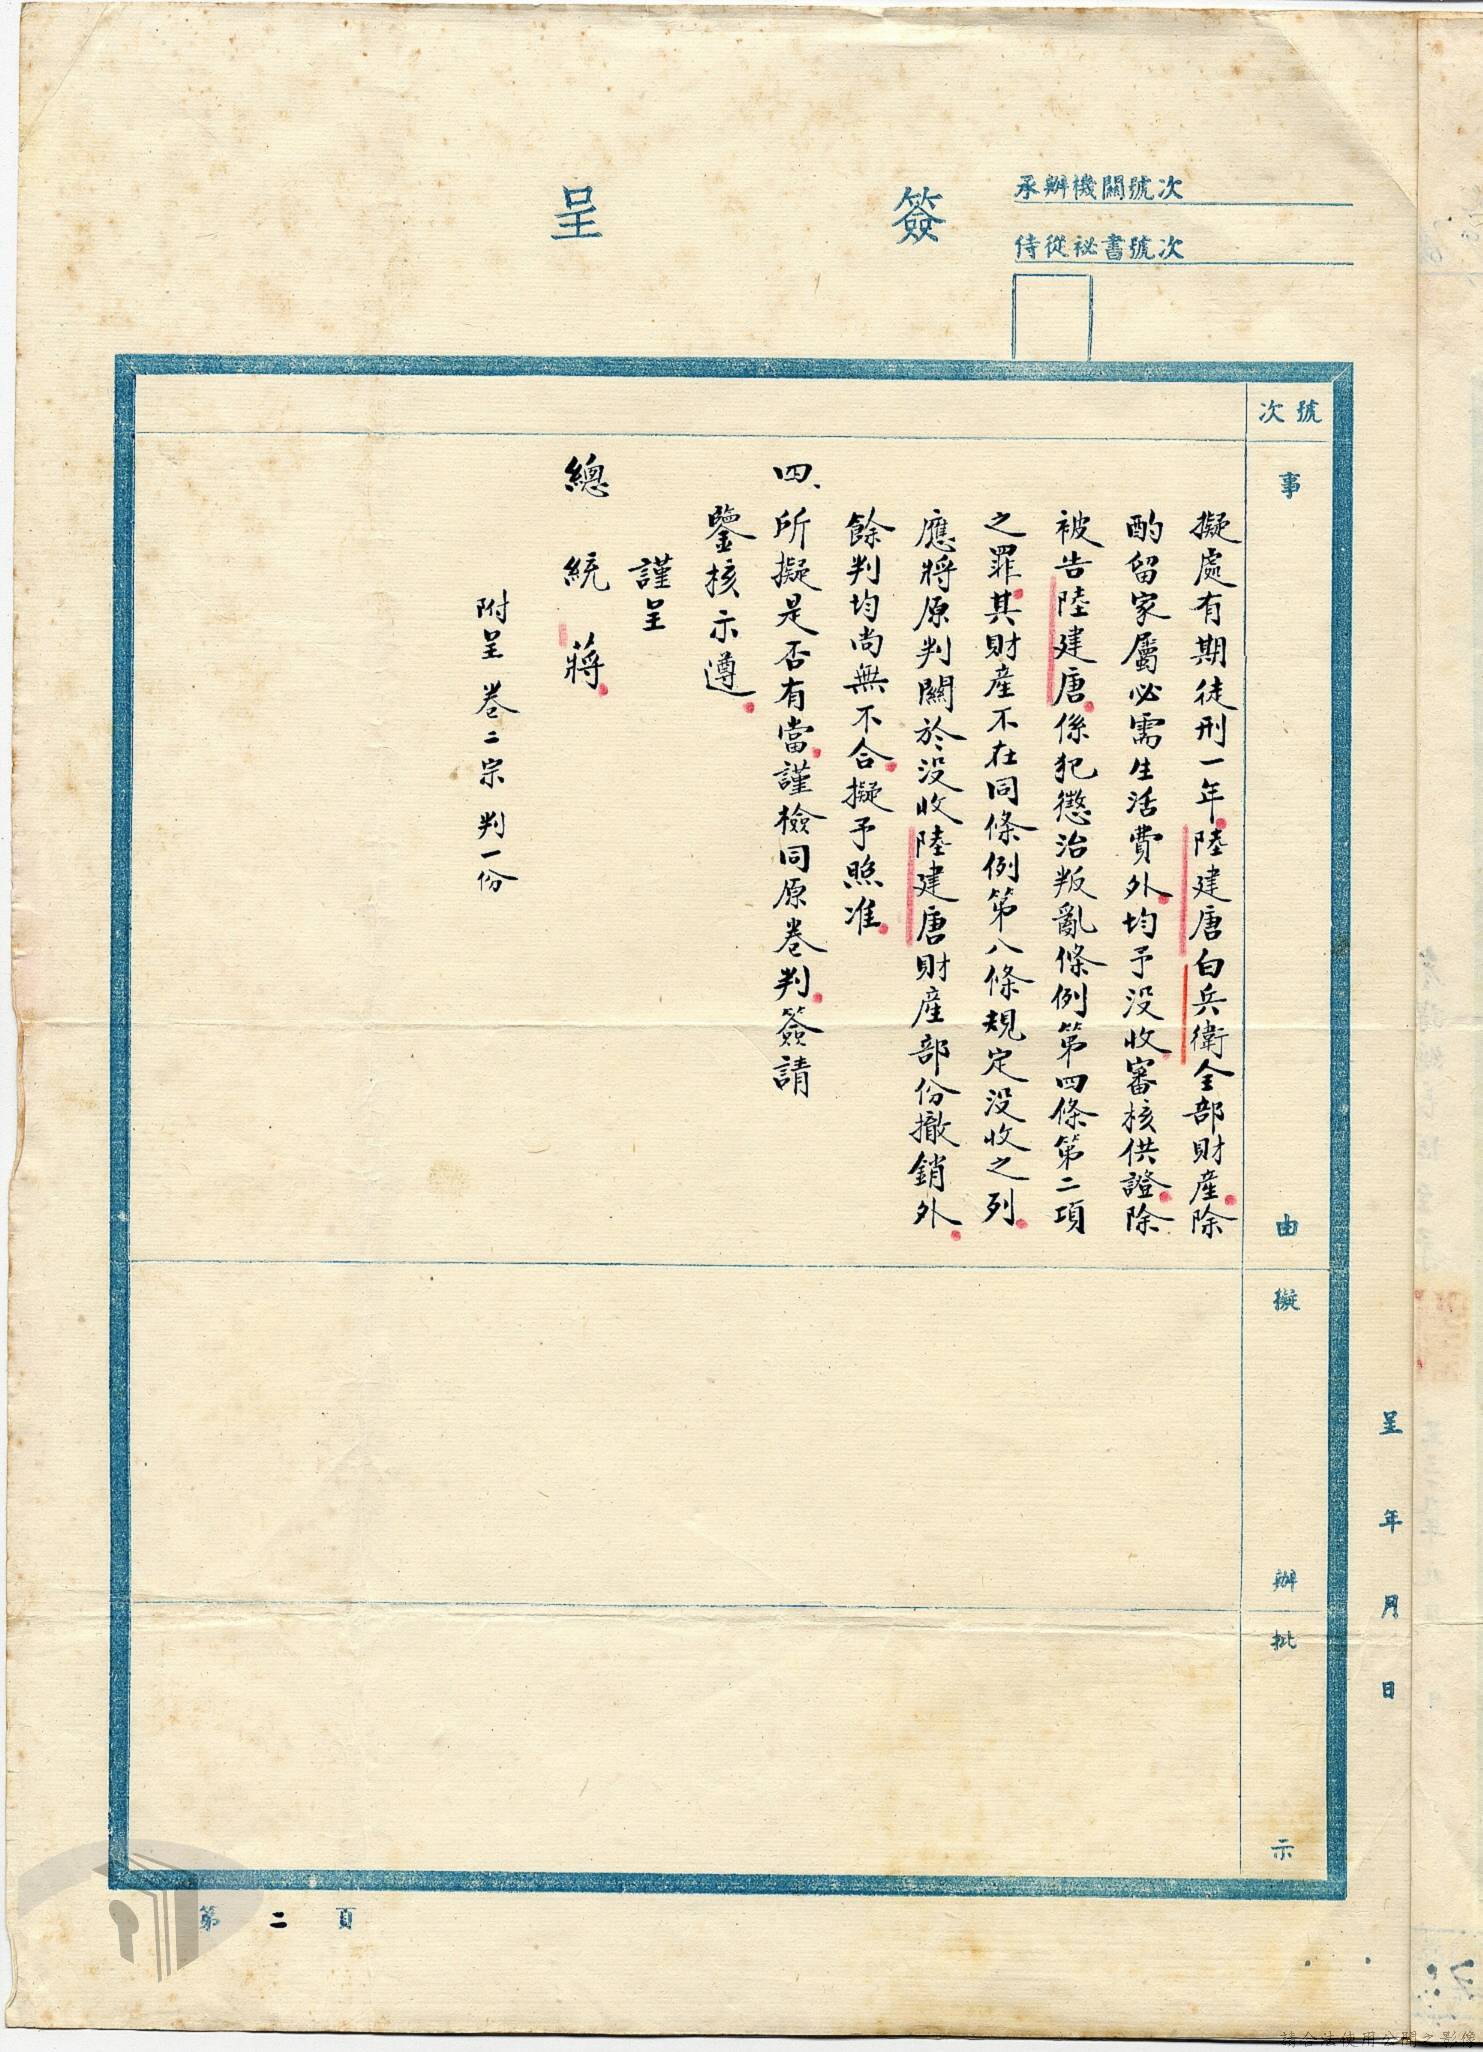 簽呈
承辦機關號次
侍從祕書號次
號次
事由
擬辦
批示
擬處有期徒刑一年陸建唐白兵衛全部財產除
酌留家屬必需生活費外均予沒收審核供證除
被告陸建唐係犯懲治叛亂條例第四條第二項
之罪其財產不在同條例第八條規定沒收之列
應將原判關於沒收陸建唐財產部份撤銷外
餘判均尚無不合擬予照准
四、所擬是否有當謹檢同原卷判簽請
鑒核示遵
謹呈
總統 蔣
附呈 卷二宗 判一份
呈 年 月 日
第二頁
請合法使用公開之影像